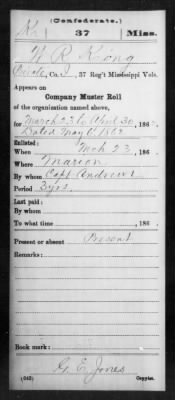 (Confederate.)
K 37 Miss.
W R King
Private, Co. I, 37 Reg't Mississippi Vols.
Appears on
Company Muster Roll
of the organization named above,
for March 23 to April 30, 186
Dated May 1, 1862
Enlisted:
When Mch 23, 186
Where Marion
By whom Capt Andrews
Period 3 yrs.
Last paid:
By whom
To what time , 186 .
Present or absent Present
Remarks:
Book mark:
G. E. Jones
(642) Copyist.